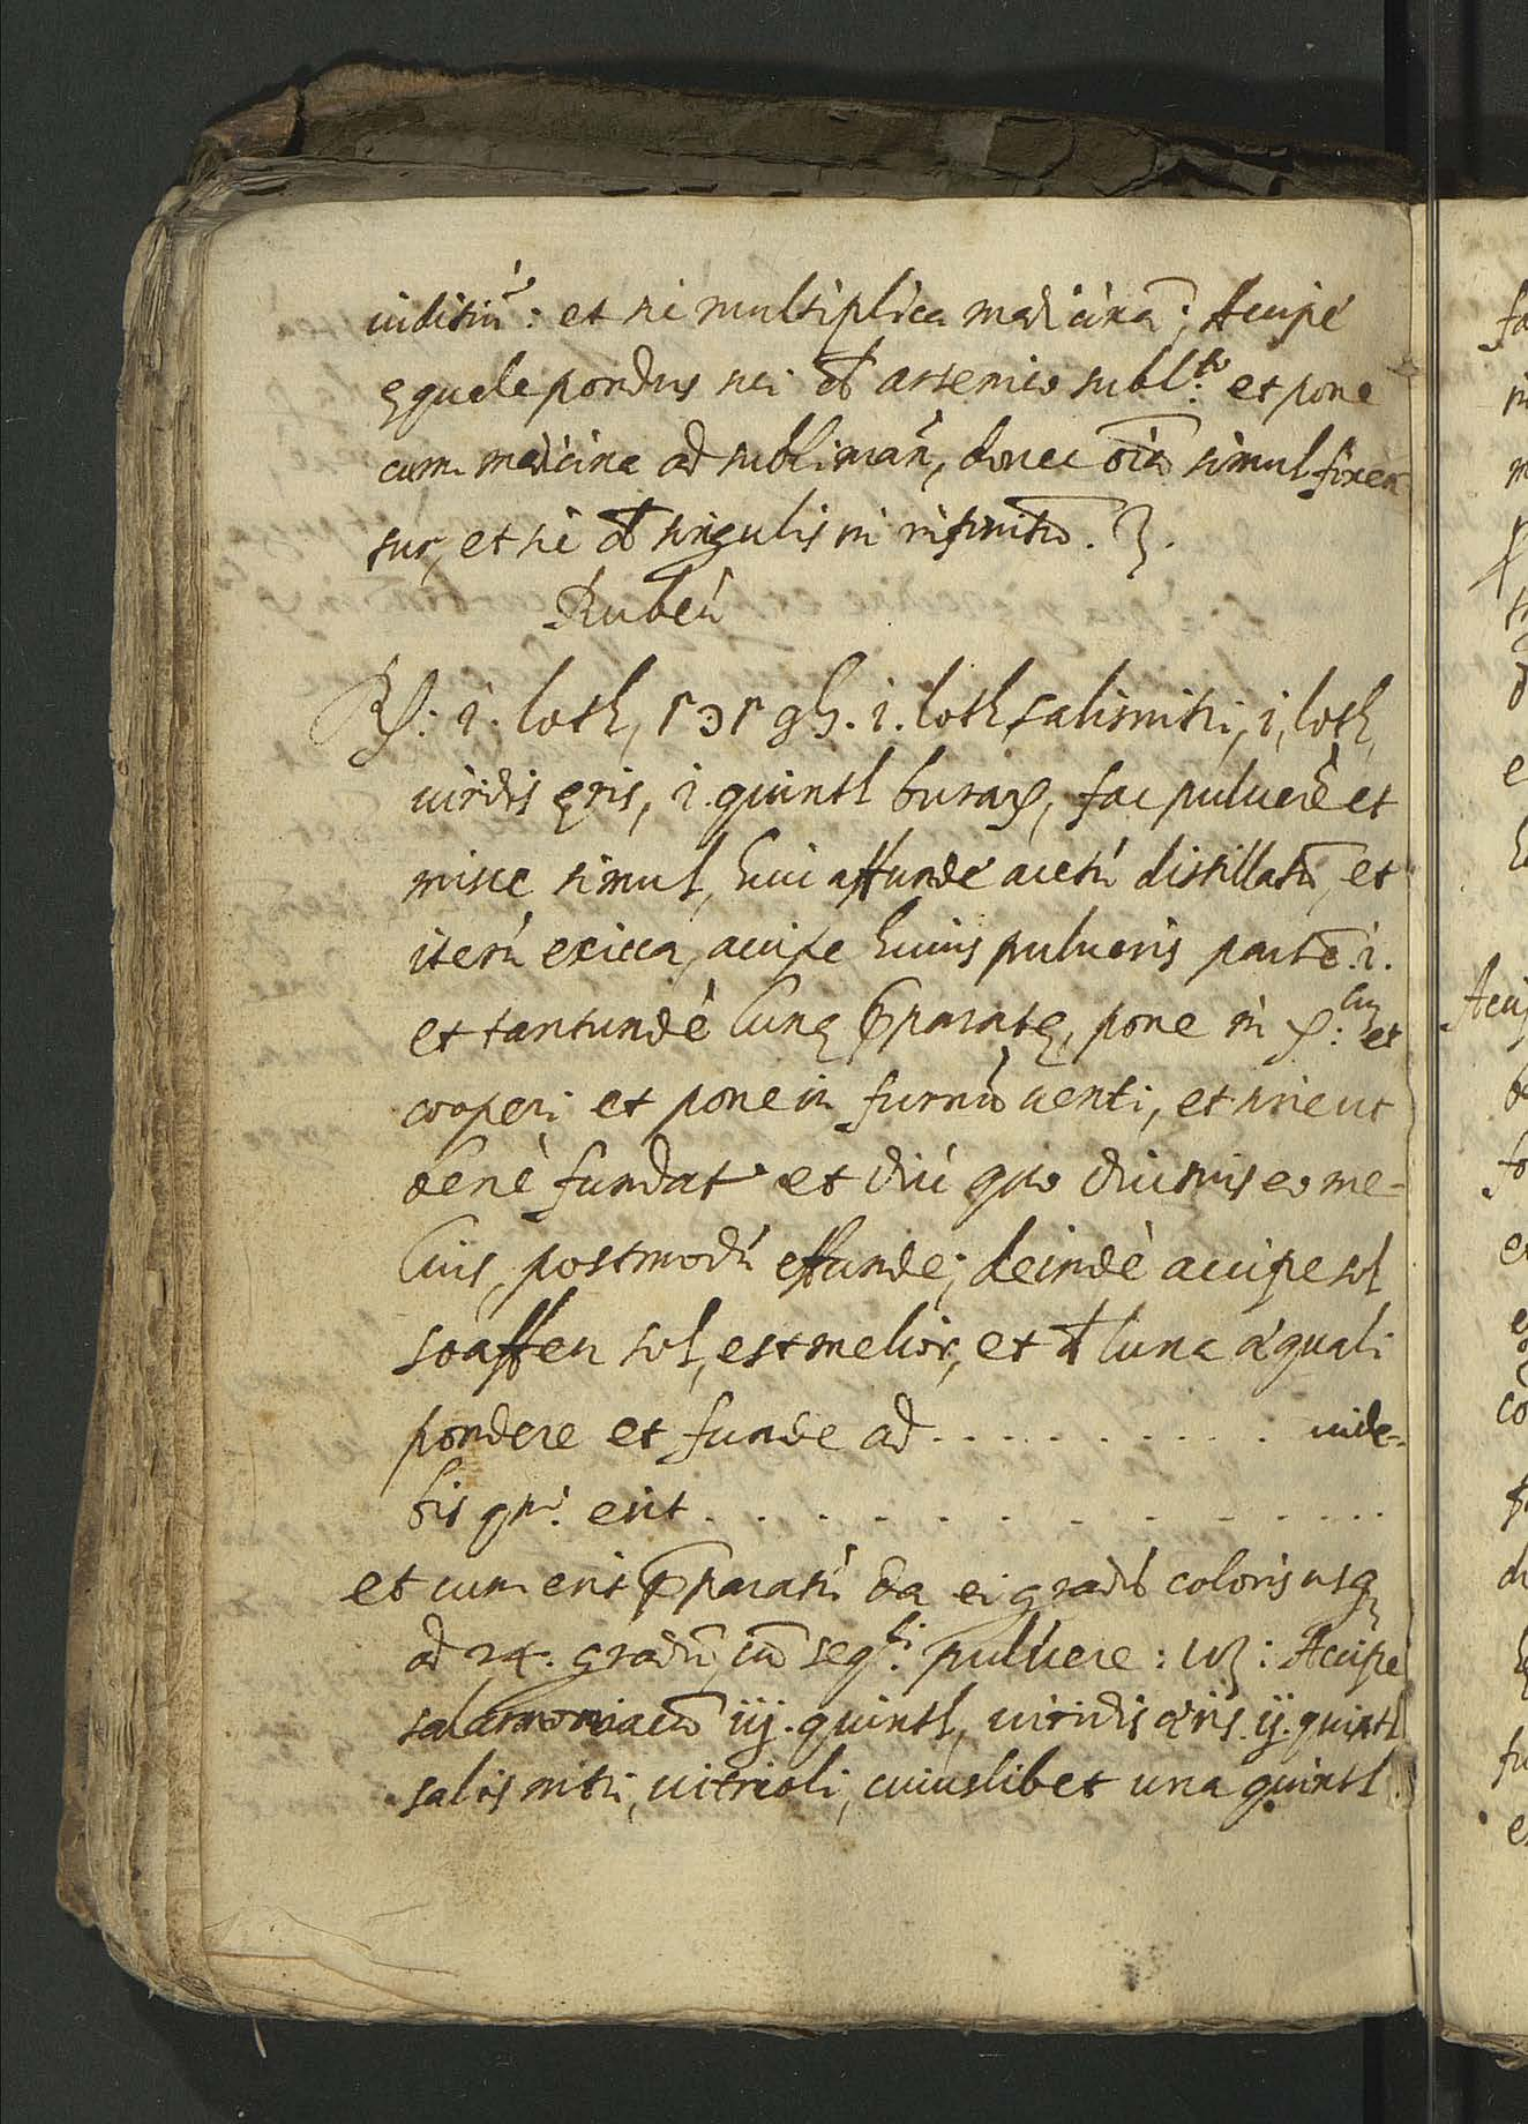 uiditiũ: et sic multiplica medicinã; Accipe
ęquale pondus sui de arsenico subl:to et pone
cum medicina ad sublimañ, donec oĩa simul fixen
tur, et sic de singulis in infinitũ.
Rubeũ
i. loth, i. loth salisnitri, i, loth,
uiridis ęris, i. quintl burax, fac puluerẽ et
misce simul, huic affunde acetũ distillatũ, et
iterũ exicca, accipe huius pulueris partẽ .i.
et tantundẽ lunę pparatę, pone in et
cooperi et pone in furnũ uenti, et sine ut
benè fundat et diù quo diutius eo me-
lius, postmodũ effunde; deindè accipe sol
sol, est melior, et de luna æquali
pondere et funde ad . . . . . . . . . . uide-
bis erit . . . . . . . . . . . .
et cum erit pparatũ da ei gradũ coloris usq
ad 24. gradũ, cũ seqti: puluere: uz: Accipe
salarmoniacũ iij. quintl, uiridis æris. ij. quintl
salis nitri, uitrioli, cuiuslibet una quintl